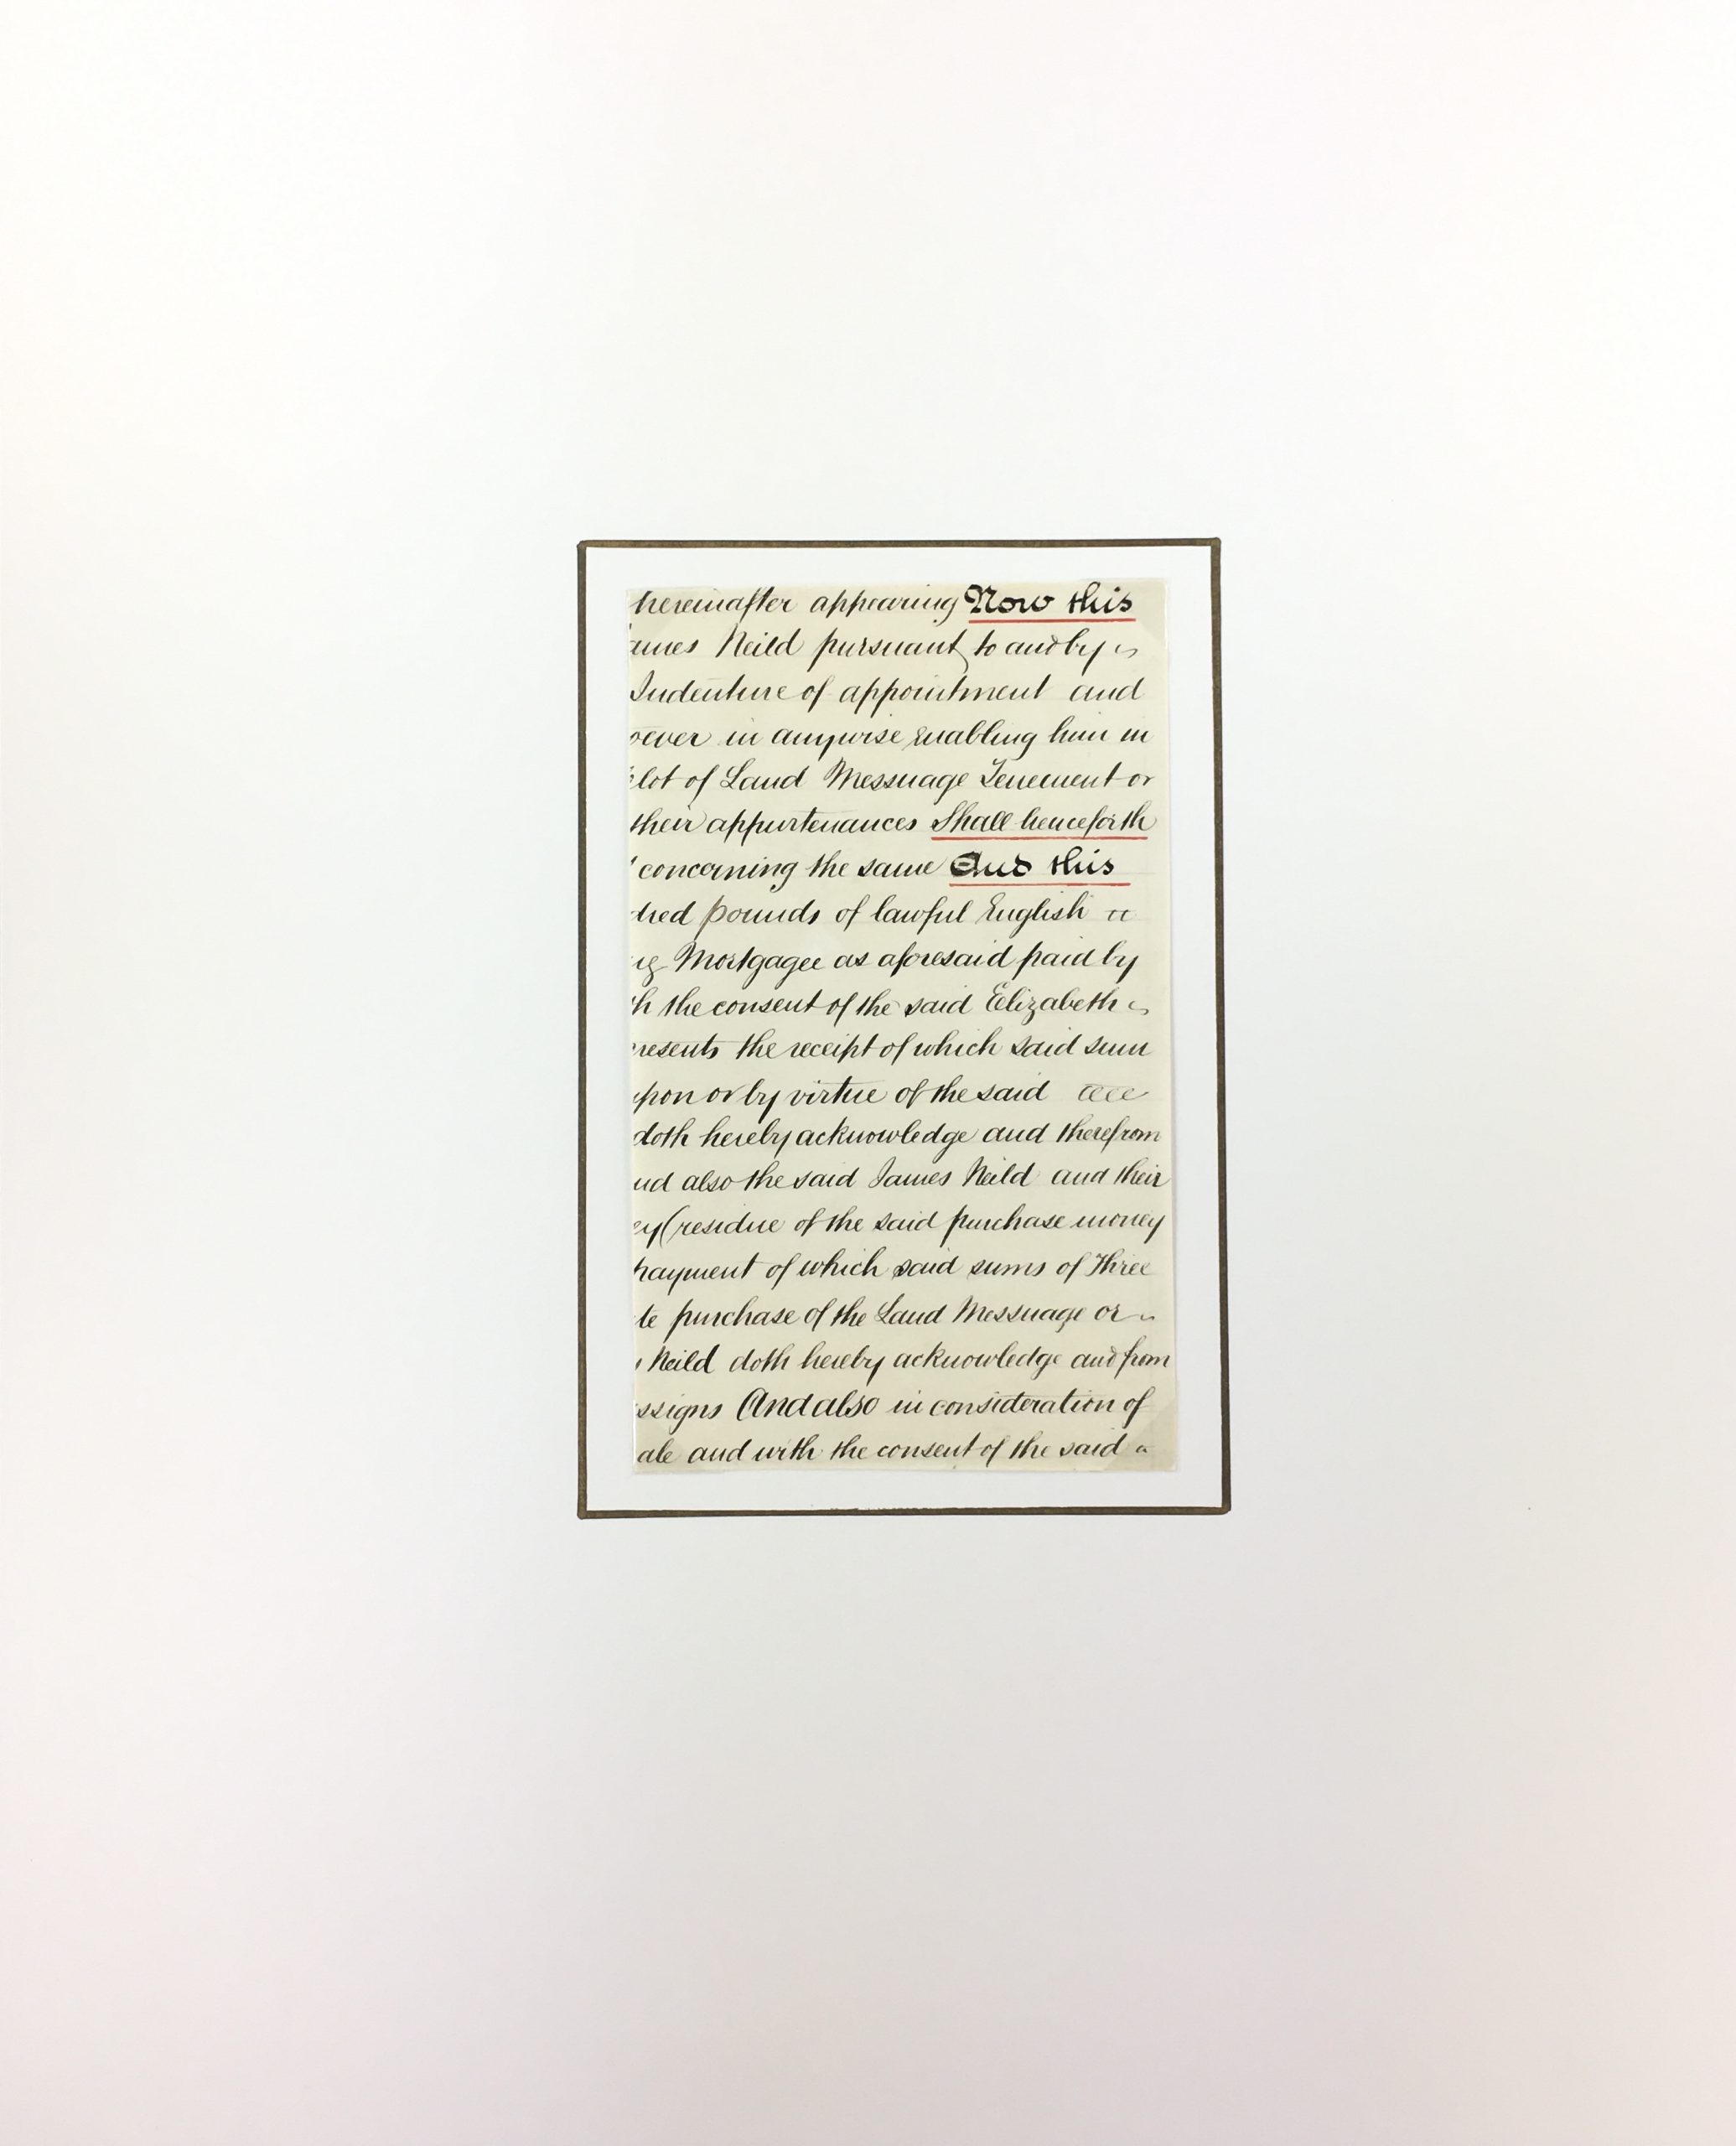 hereinafter appearing Now this
ames Neild pursuant to and by
Indenture of appointment and
oever in anywise enabling him in
plot of Land Messuage Tenement or
their appurtenances Shall henceforth
concerning the same And this
dred pounds of lawful English
Mortgagee as aforesaid paid by
h the consent of the said Elizabeth
resents the receipt of which said sum
upon or by virtue of the said
doth hereby acknowledge and therefrom
nd also the said James Neild and their
ey (residue of the said purchase money
payment of which said sums of Three
te purchase of the Land Messuage or
Neild doth hereby acknowledge and from
ssigns And also in consideration of
ale and with the consent of the said